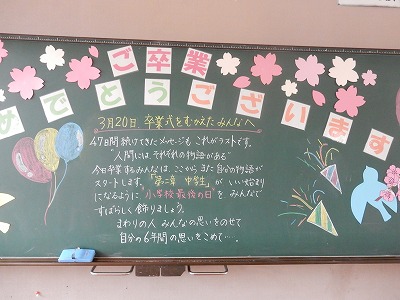 ご卒業
めでとうございます
3月20日 卒業式をむかえたみんなへ
47日間続けてきたメッセージも これがラストです。
人間には、それぞれの物語がある
今日卒業するみんなは、ここから また自分の物語が
スタートします。「第二章 中学生」が いい始まり
になるように"小学校最後の日"を みんなで
すばらしく飾りましょう。
まわりの人 みんなの思いをのせて
自分の6年間の思いをこめて…。